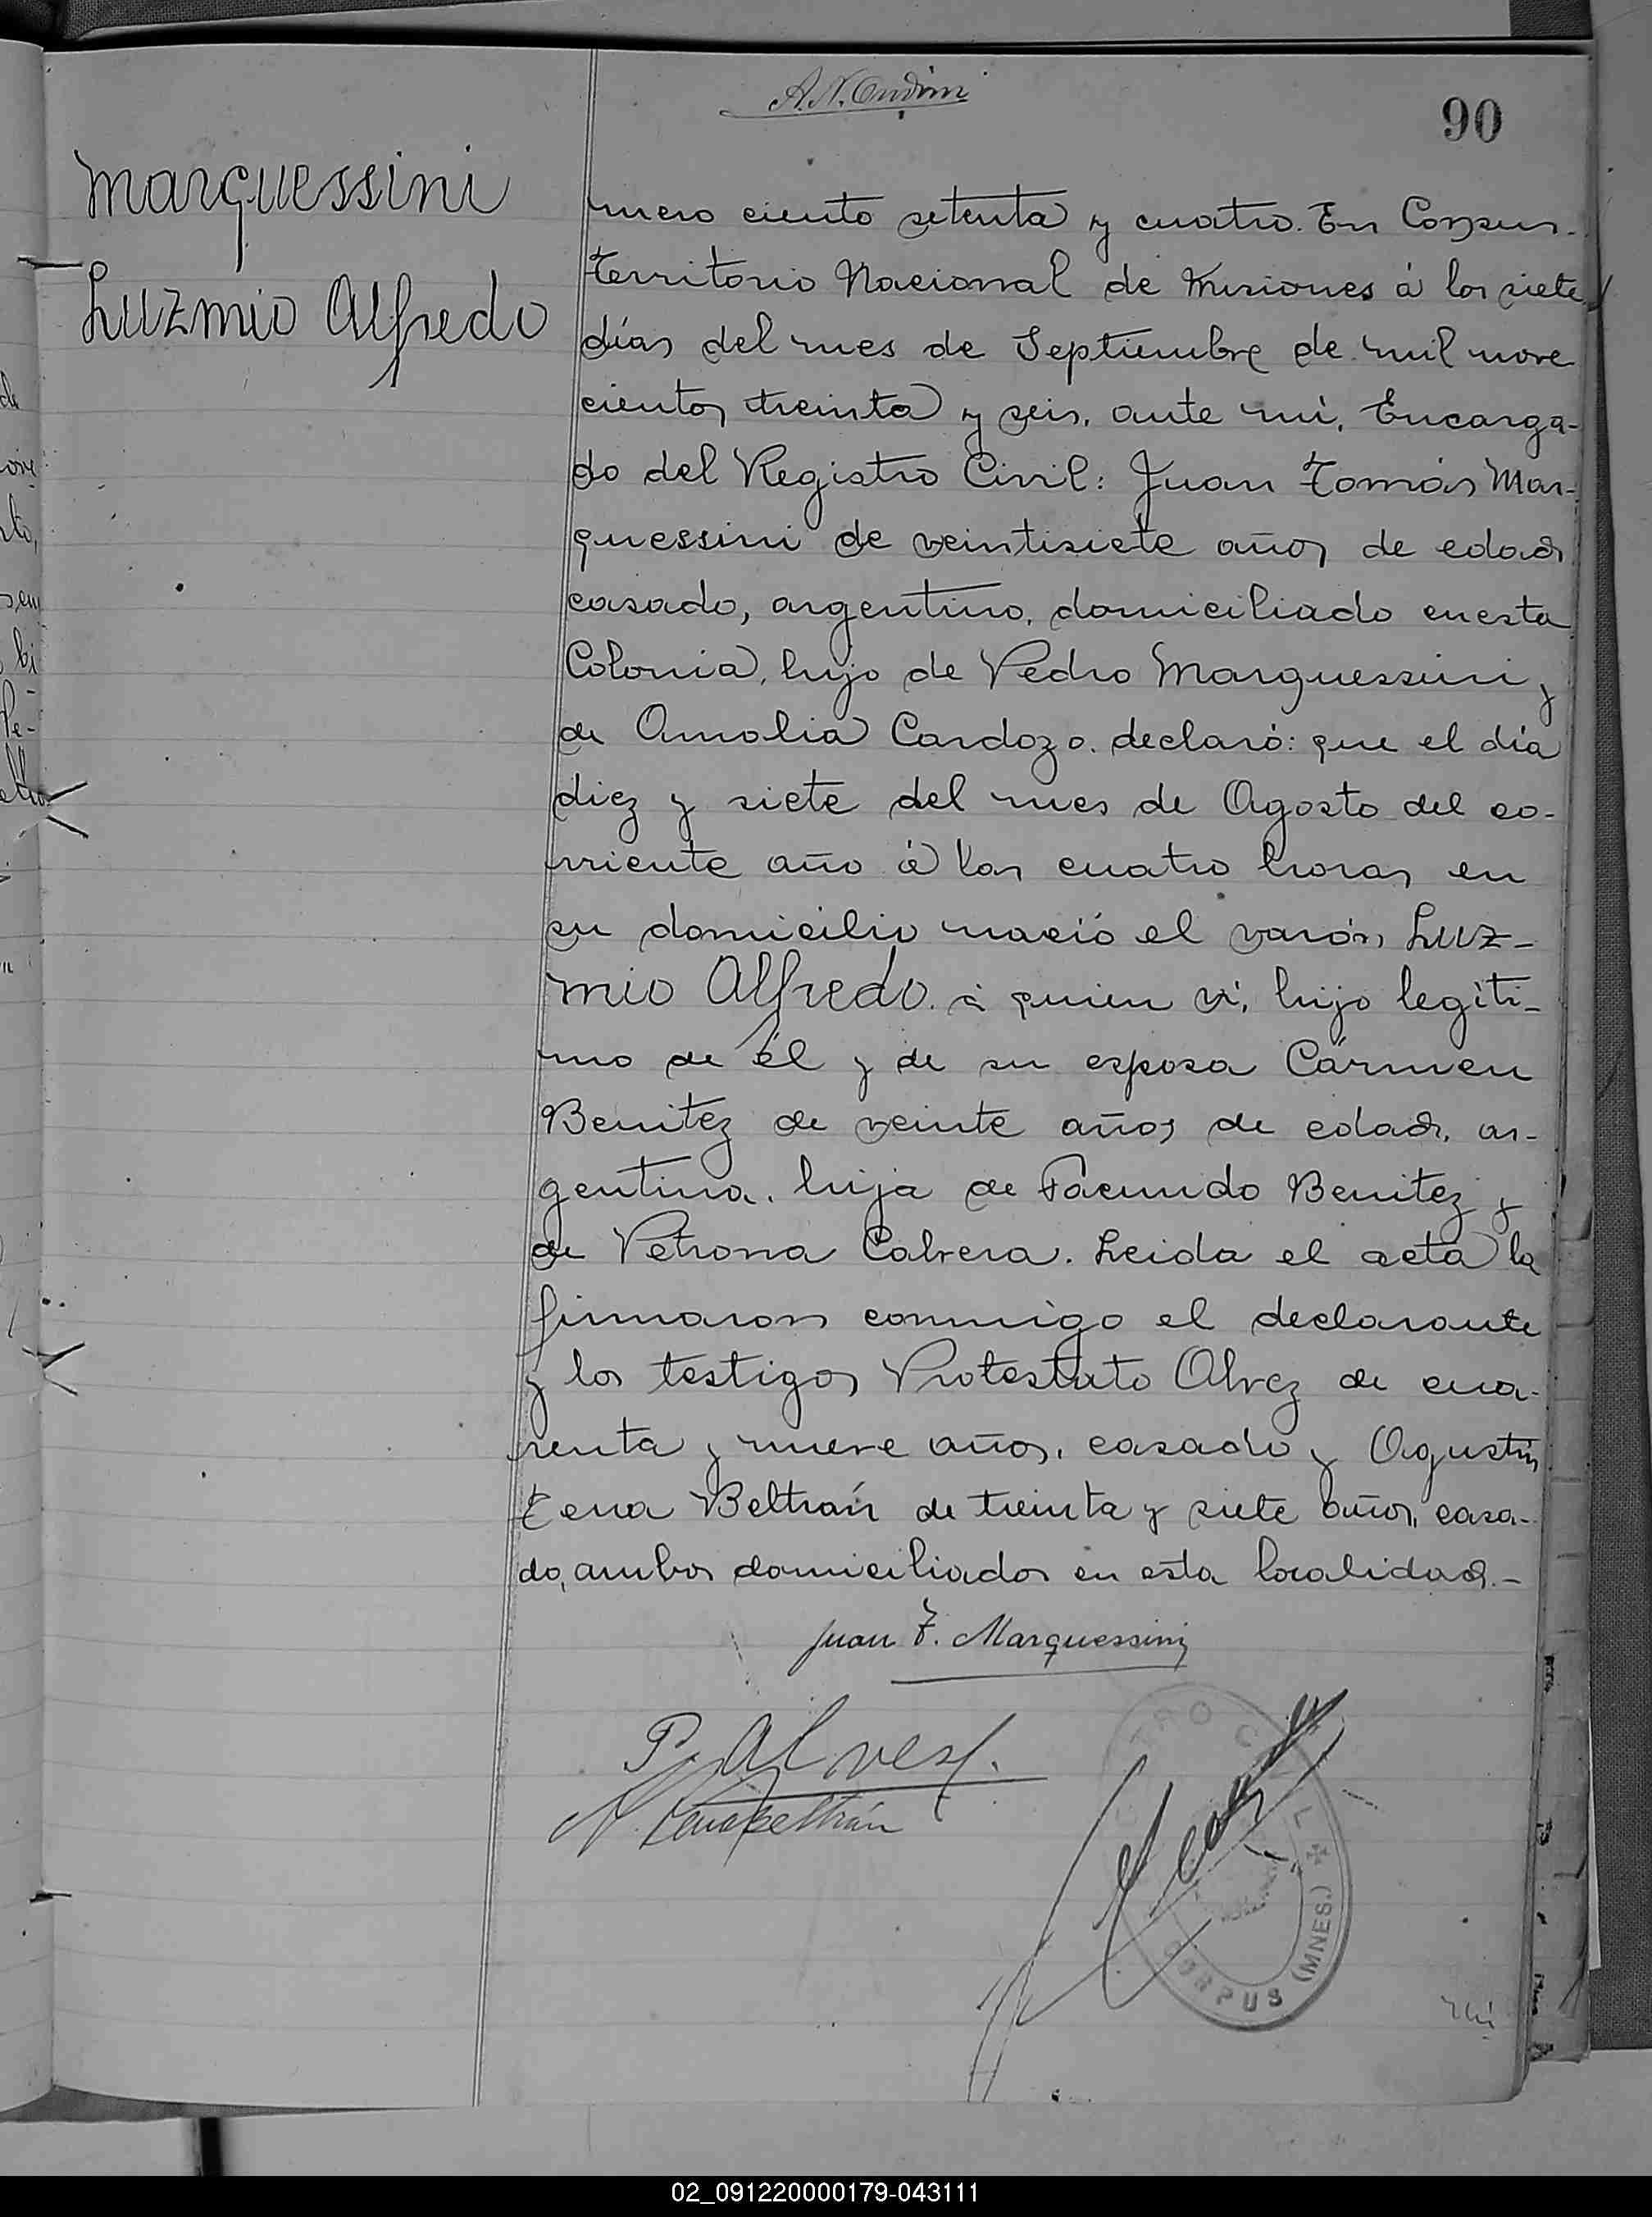 90
Marquessini
Luzmio Alfredo
mero ciento setenta y cuatro. En Corpus.
Territorio Nacional de Misiones á los siete
días del mes de Septiembre de mil nove
cientos treinta y seis, ante mí, Encarga-
do del Registro Civil: Juan Tomás Mar-
quessini de veintisiete años de edad
casado, argentino, domiciliado en esta
Colonia, hijo de Pedro Marquessini y
de Amalia Cardozo. declaró: que el día
diez y siete del mes de Agosto del co-
rriente año á las cuatro horas en
su domicilio nació el varón Luz-
mio Alfredo. á quien ví, hijo legíti-
mo de él y de su esposa Cármen
Benitez de veinte años de edad, ar-
gentina, hija de Facundo Benitez y
de Petrona Cabrera. Leida el acta la
firmaron conmigo el declarante
y los testigos Protestato Alvez de cua-
renta y nueve años, casado y Agustín
Tena Beltrán de treinta y siete años, casa-
do, ambos domiciliados en esta localidad.-
Juan T. Marquessini
P. Alvez.
A. Tena Beltrán
CORPUS (MNES.)
02_091220000179-043111